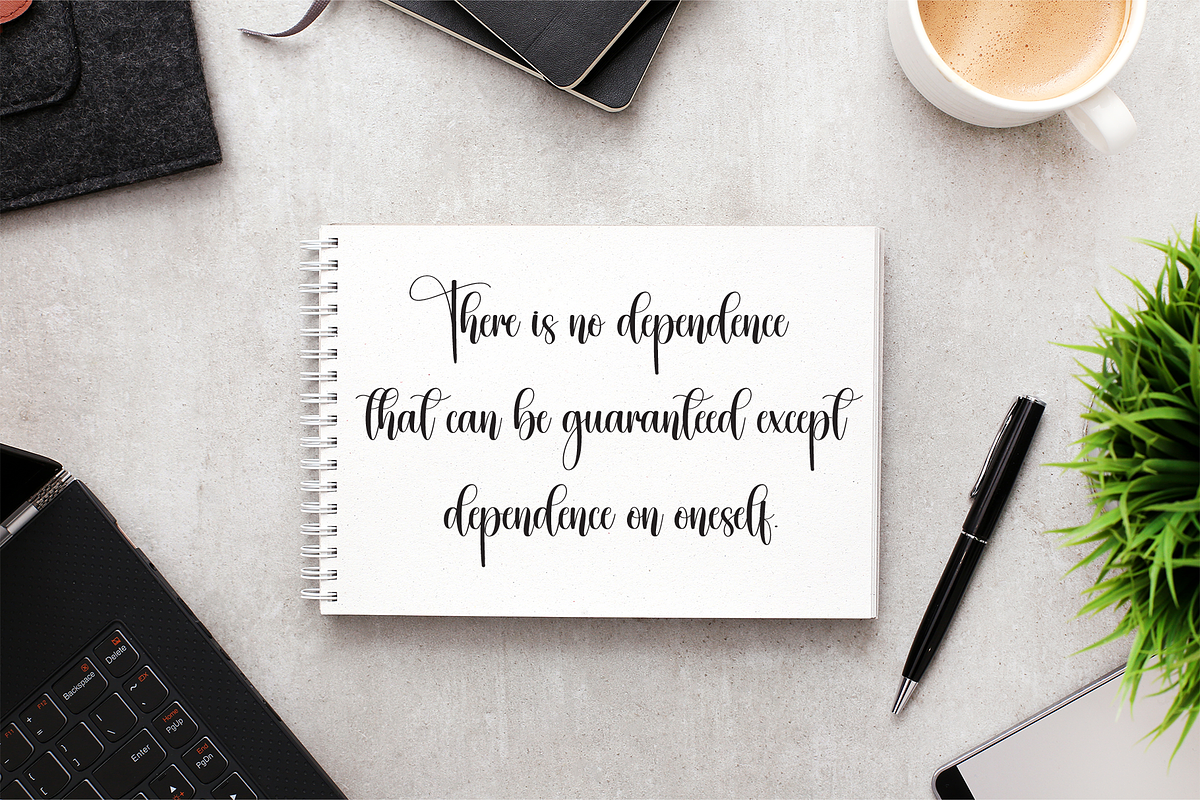 There is no dependence
that can be guaranteed except
dependence on oneself.
Delete
Backspace
F12
+
=
F11
Home
PgUp
End
PgDn
Enter